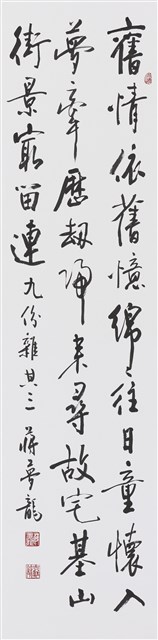 舊情依舊憶綿々往日童懷入
夢牽歷劫歸来尋故宅基山
街景最留連 九份雜其三 蔣夢龍